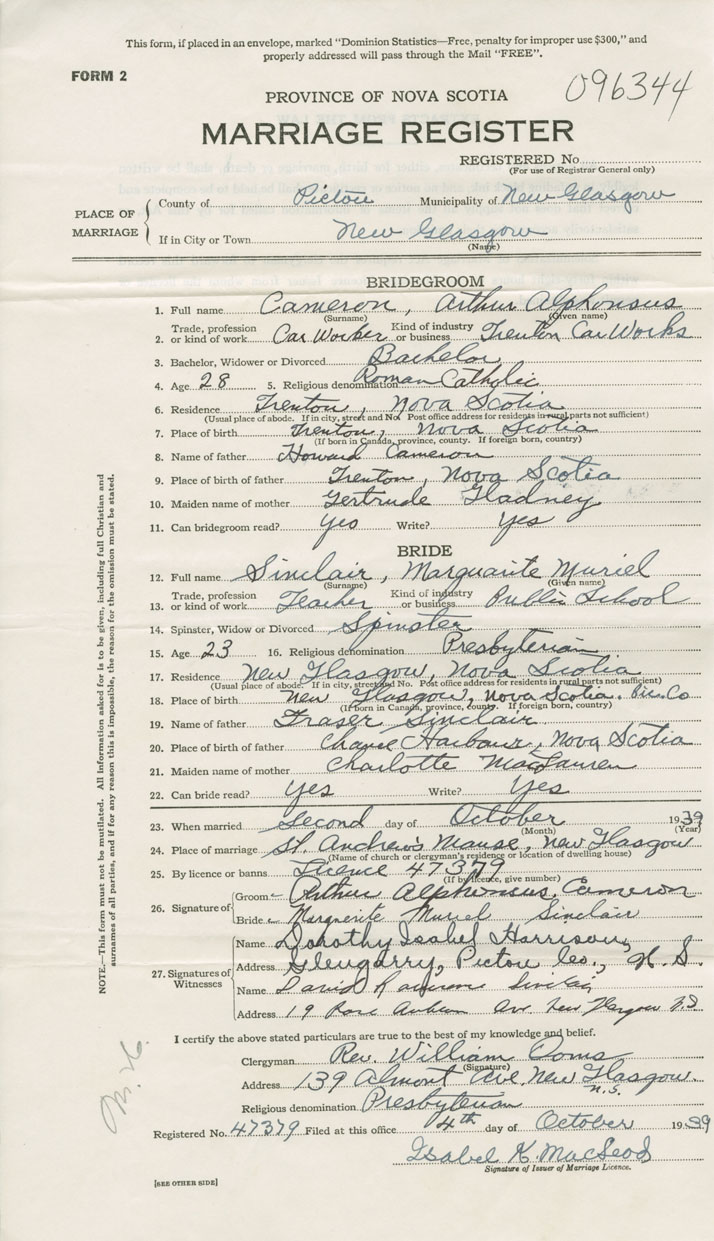 This form, if placed in an envelope, marked "Dominion Statistics—Free, penalty for improper use $300," and
properly addressed will pass through the Mail "FREE".
FORM 2
096344
PROVINCE OF NOVA SCOTIA
MARRIAGE REGISTER
REGISTERED No.
(For use of Registrar General only)
PLACE OF MARRIAGE
County of Pictou Municipality of New Glasgow
If in City or Town New Glasgow
(Name)
BRIDEGROOM
1. Full name Cameron, Arthur Alphonsus
(Surname) (Given name)
2. Trade, profession or kind of work Car Worker Kind of industry or business Trenton Car Works
3. Bachelor, Widower or Divorced Bachelor
4. Age 28 5. Religious denomination Roman Catholic
6. Residence Trenton, Nova Scotia
(Usual place of abode. If in city, street and No. Post office address for residents in rural parts not sufficient)
7. Place of birth Trenton, Nova Scotia
(If born in Canada, province, county. If foreign born, country)
8. Name of father Howard Cameron
9. Place of birth of father Trenton, Nova Scotia
10. Maiden name of mother Gertrude Gladney
11. Can bridegroom read? Yes Write? Yes
BRIDE
12. Full name Sinclair, Marguarite Muriel
(Surname) (Given name)
13. Trade, profession or kind of work Teacher Kind of industry or business Public School
14. Spinster, Widow or Divorced Spinster
15. Age 23 16. Religious denomination Presbyterian
17. Residence New Glasgow, Nova Scotia
(Usual place of abode. If in city, street and No. Post office address for residents in rural parts not sufficient)
18. Place of birth New Glasgow, Nova Scotia. Pic. Co
(If born in Canada, province, county. If foreign born, country)
19. Name of father Fraser Sinclair
20. Place of birth of father Harbour, Nova Scotia
21. Maiden name of mother Charlotte MacLauren
22. Can bride read? Yes Write? Yes
23. When married Second day of October 1939
(Month) (Year)
24. Place of marriage St. Andrew's Manse, New Glasgow
(Name of church or clergyman's residence or location of dwelling house)
25. By licence or banns Licence 47379
(If by licence, give number)
26. Signature of
Groom Arthur Alphonsus Cameron
Bride Marguerite Muriel Sinclair
27. Signatures of Witnesses
Name Dorothy Isabel Harrison
Address Glengarry, Pictou Co., N.S.
Name David Sinclair
Address 19 Ave New Glasgow N.S.
I certify the above stated particulars are true to the best of my knowledge and belief.
Clergyman Rev. William Ooms
(Signature)
Address 139 Almont Ave New Glasgow.
N.S.
Religious denomination Presbyterian
Registered No. 47379 Filed at this office 4th day of October 1939
Isabel K. MacLeod
Signature of Issuer of Marriage Licence.
[SEE OTHER SIDE]
NOTE.—This form must not be mutilated. All information asked for is to be given, including full Christian and
surnames of all parties, and if for any reason this is impossible, the reason for the omission must be stated.